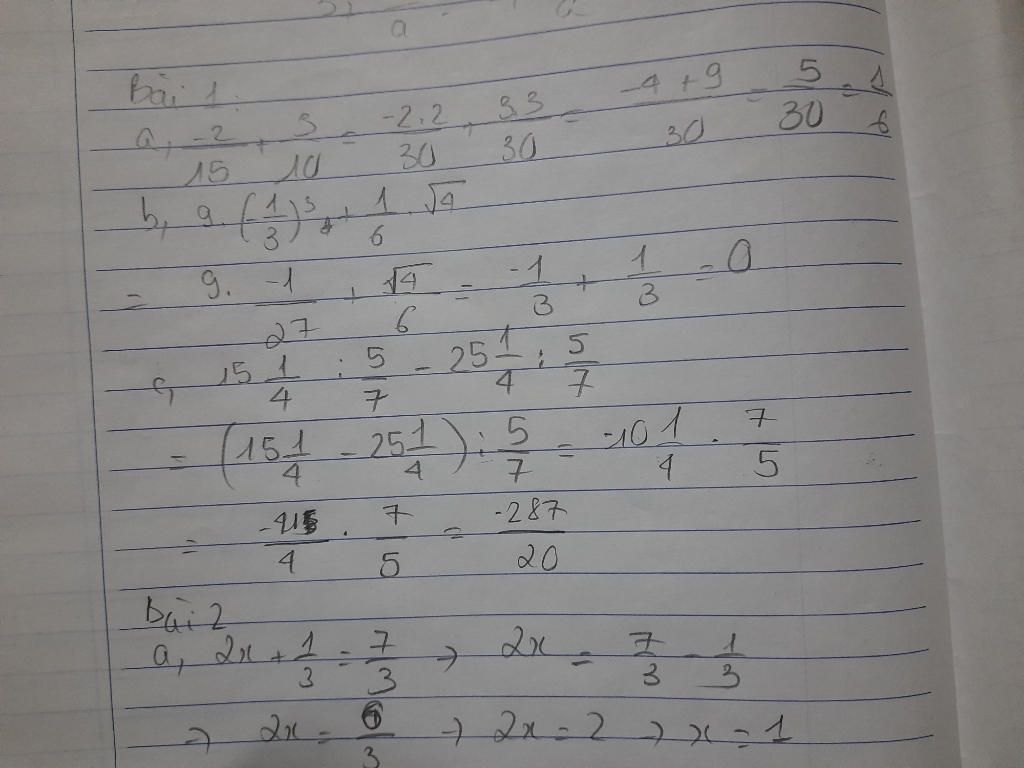 a
Bài 1:
a, -2/15 + 3/10 = -2.2/30 + 3.3/30 = -4+9/30 = 5/30 = 1/6
b, 9.(1/3)^3 + 1/6 . √4
= 9. -1/27 + √4/6 = -1/3 + 1/3 = 0
c, 15 1/4 : 5/7 - 25 1/4 : 5/7
= (15 1/4 - 25 1/4) : 5/7 = -10 1/4 . 7/5
= -41/4 . 7/5 = -287/20
Bài 2
a, 2x + 1/3 = 7/3 → 2x = 7/3 - 1/3
→ 2x = 6/3 → 2x = 2 → x = 1